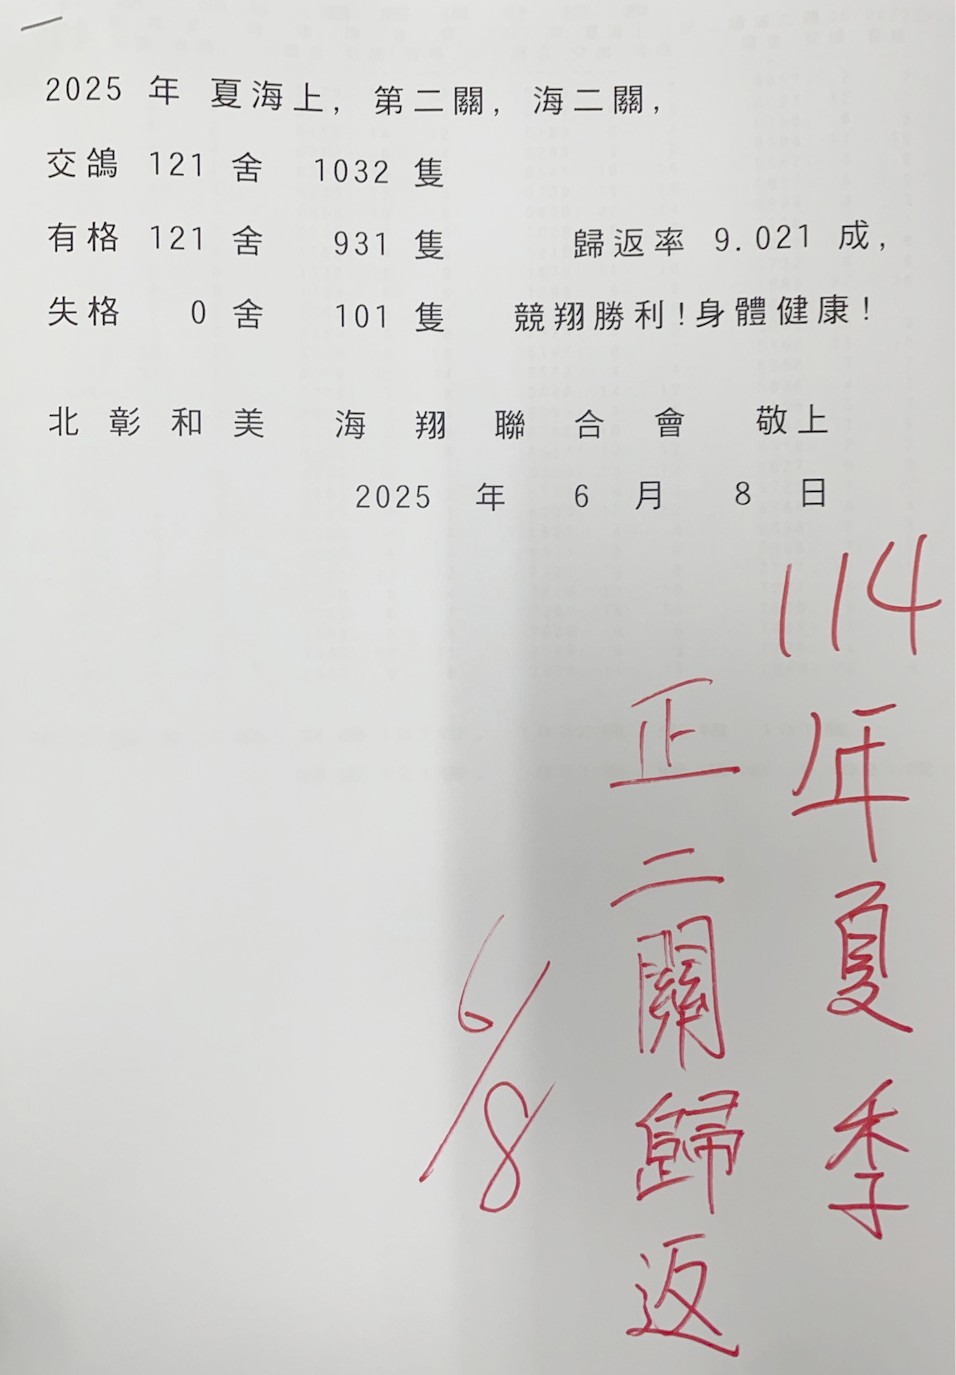 2025 年 夏海上, 第二關, 海二關,
交鴿 121 舍 1032 隻
有格 121 舍 931 隻 歸返率 9.021 成,
失格 0 舍 101 隻 競翔勝利!身體健康!
北彰和美 海翔聯合會 敬上
2025 年 6 月 8 日
114年夏季
正二關歸返
6/8